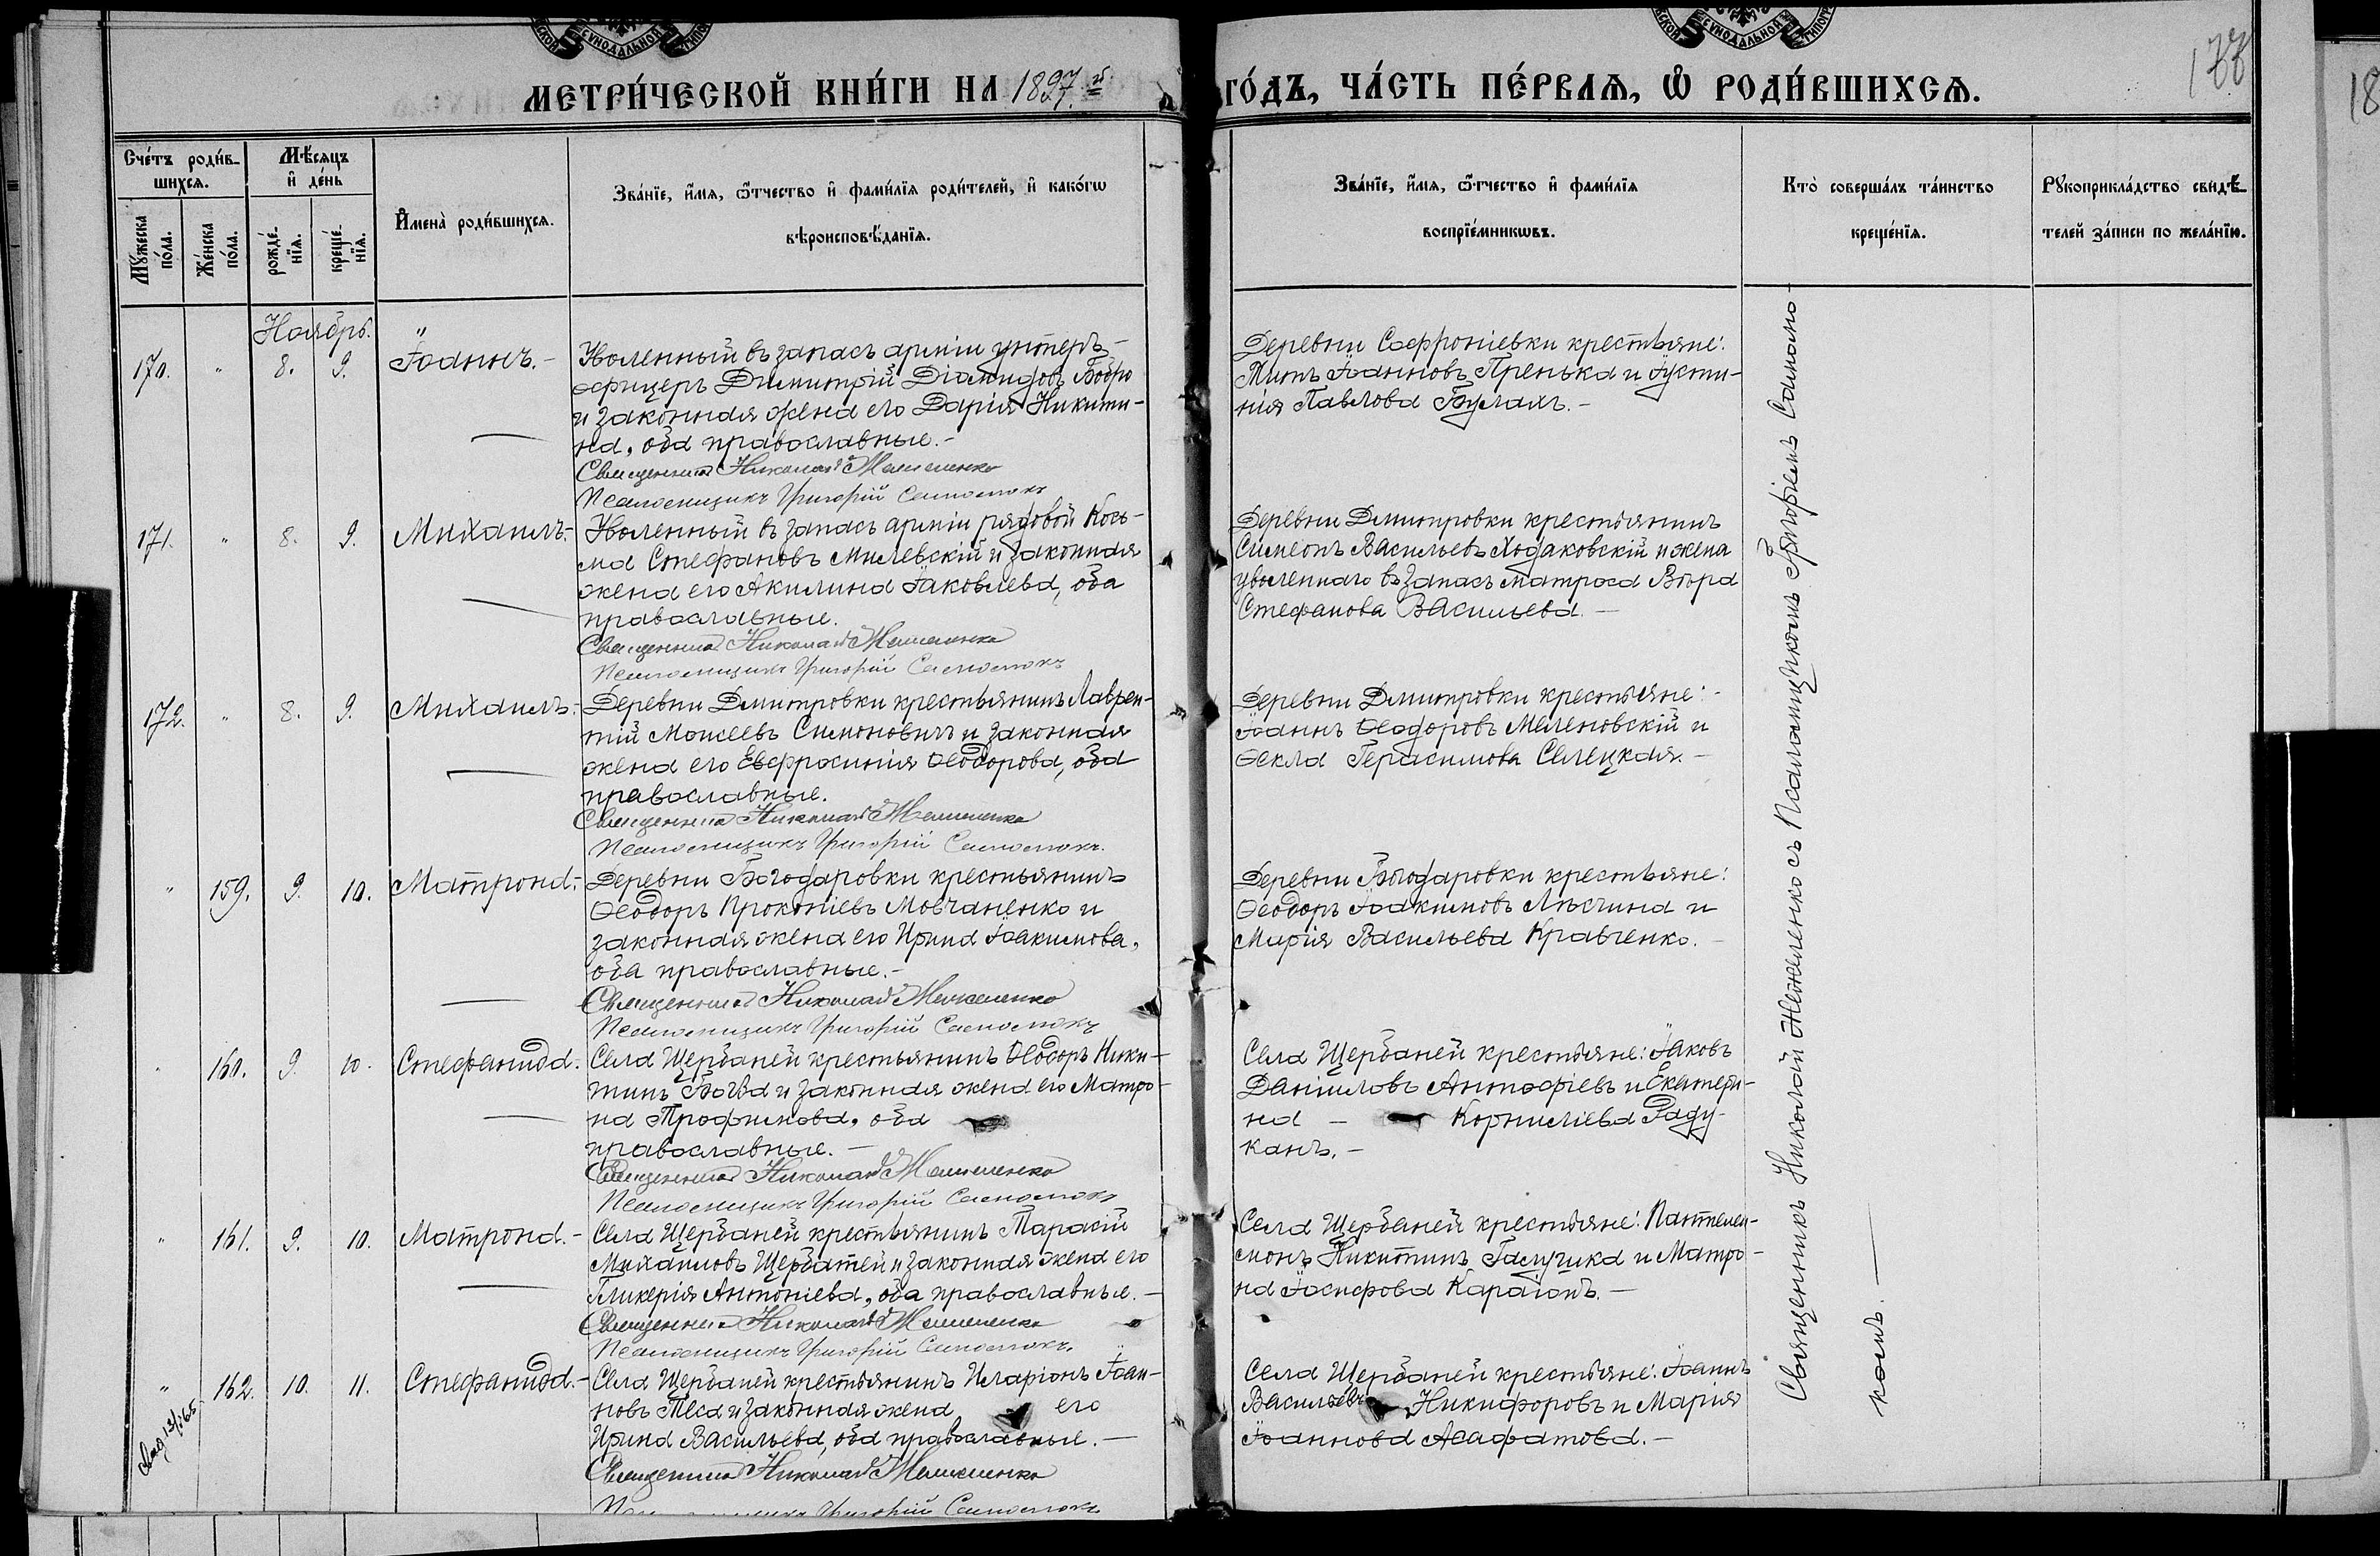 МЕТРИ́ЧЕСКОЙ КНИ́ГИ НА 1897.й ГО́ДЪ, ЧА́СТЬ ПЕ́РВАѦ, Ѡ РОДИ́ВШИХСѦ.
177
18
Сче́тъ роди́в-
шихсѧ.
Мѣ́сѧцъ
и де́нь
Мꙋ́жеска
по́ла.
Же́нска
по́ла.
рожде́-
нїѧ.
креще́-
нїѧ.
Имена̀ роди́вшихсѧ.
Зва́нїе, и́мѧ, ѻ́тчество и фами́лїѧ роди́телей, и како́гѡ
вѣроисповѣ́данїѧ.
Зва́нїе, и́мѧ, ѻ́тчество и фами́лїѧ
воспрїе́мникѡвъ.
Кто̀ соверша́лъ та́инство
креще́нїѧ.
Рꙋкоприкла́дство свидѣ́-
телей за́писи по жела́нїю.
Ноябрь.
170. " 8. 9. Іоаннъ.-
Уволенный въ запасъ арміи унтеръ-
офицеръ Димитрій Діомидовъ Бобро
и законная жена его Дарія Никити-
на, оба православные.-
Священникъ Николай
Псаломщикъ Григорій Саломонъ
Деревни Софроніевки крестьяне:
Титъ Іоанновъ Пренька и Іусти-
нія Павлова Булахъ.-
171. " 8. 9. Михаилъ.-
Уволенный въ запасъ арміи рядовой Кось-
ма Стефановъ Милевскій и законная
жена его Акилина Іаковлева, оба
православные.
Священникъ Николай
Псаломщикъ Григорій Саломонъ
Деревни Дмитровки крестьянинъ
Симеонъ Васильевъ Ходаковскій и жена
уволеннаго въ запасъ матроса Вѣра
Стефанова Васильева.-
172. " 8. 9. Михаилъ.-
Деревни Дмитровки крестьянинъ Лаврен-
тій Моисеевъ Симоновичъ и законная
жена его Евфросинія Ѳеодорова, оба
православные.
Священникъ Николай
Псаломщикъ Григорій Саломонъ.
Деревни Дмитровки крестьяне:-
Іоаннъ Ѳеодоровъ Меленовскій и
Ѳекла Герасимова Селецкая.-
" 159. 9. 10. Матрона.-
Деревни Богодаровки крестьянинъ
Ѳеодоръ Прокопіевъ Мовчаненко и
законная жена его Ирина Іоакимова,
оба православные.-
Священникъ Николай
Псаломщикъ Григорій Саломонъ
Деревни Богодаровки крестьяне:
Ѳеодоръ Іоакимовъ и
Марія Васильева Кравченко.-
" 160. 9. 10. Стефанида.-
Села Щербаней крестьянинъ Ѳеодоръ Ники-
тинъ и законная жена его Матро-
на Трофимова, оба
православные.-
Священникъ Николай
Псаломщикъ Григорій Саломонъ
Села Щербаней крестьяне: Іаковъ
Даніиловъ Антофіевъ и Екатери-
на - Корниліева Раду-
канъ.-
" 161. 9. 10. Матрона.-
Села Щербаней крестьянинъ Тарасій
Михаиловъ Щербатей и законная жена его
Гликерія Антоніева, оба православные.-
Священникъ Николай
Псаломщикъ Григорій Саломонъ.
Села Щербаней крестьяне: Пантелеи-
монъ Никитинъ Галушка и Матро-
на Іосифова Караіонъ.-
" 162. 10. 11. Стефанида.-
Села Щербаней крестьянинъ Иларіонъ Іоан-
новъ Теса и законная жена его
Ирина Васильева, оба православные.-
Священникъ Николай
Григорій Саломонъ
Села Щербаней крестьяне: Іоаннъ
Васильевъ Никифоровъ и Марія
Іоаннова Асафатова.-
Священникъ Николай съ Псаломщикомъ Григоріемъ Саломо-
номъ.